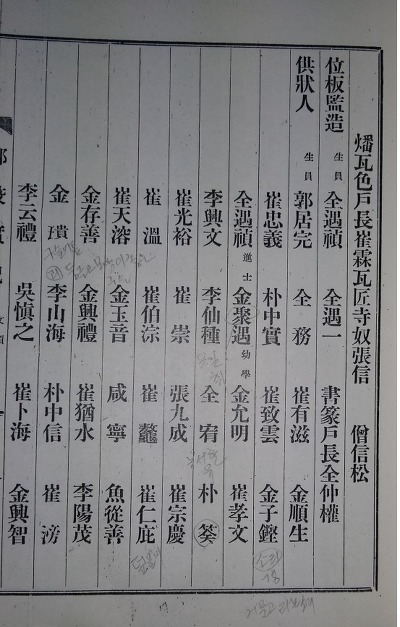 燔瓦色戶長崔霖瓦匠寺奴張信 僧信松
位板監造 生員 全遇禎 全遇一 書篆戶長全仲權
供狀人 生員 郭居完 全務 崔有滋 金順生
崔忠義 朴中實 崔致雲 金子鏗
全遇禎 進士 金聚遇 幼學 金允明 崔孝文
李興文 李仙種 全宥 朴葵
崔光裕 崔崇 張九成 崔宗慶
崔溫 崔伯淙 崔鼇 崔仁庇
崔天溶 金玉音 咸寧 魚從善
金存善 金興禮 崔猶水 李陽茂
金璝 李山海 朴中信 崔滂
李云禮 吳愼之 崔卜海 金興智